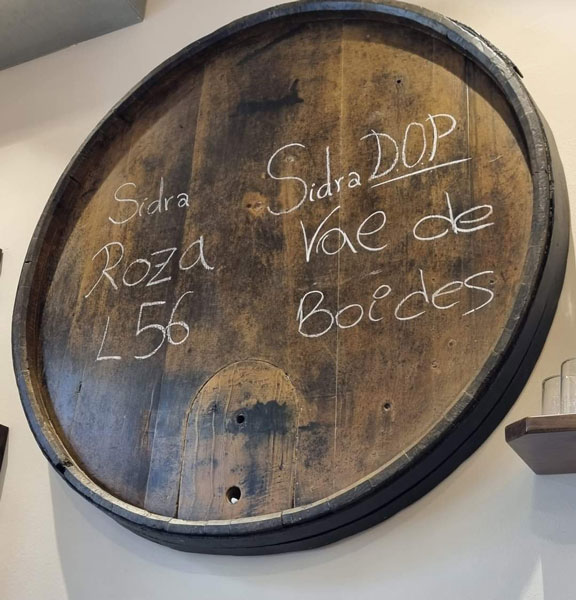 Sidra
Roza
L56
Sidra D.O.P
Vae de
Boides